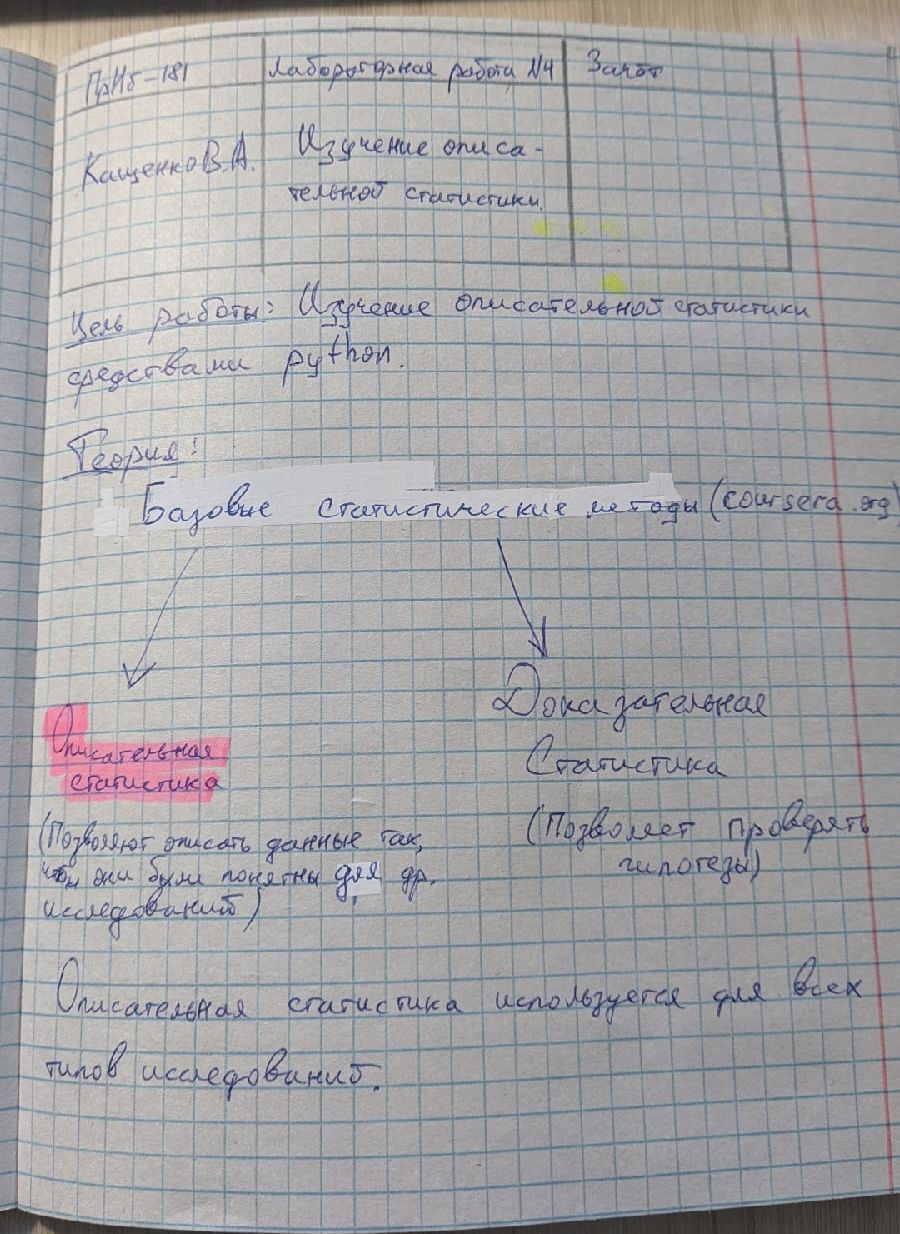 ПрИб-181
Лабораторная работа №4
Зачёт
Кащенко В.А.
Изучение описа-
тельной статистики.
Цель работы: Изучение описательной статистики
средствами python.
Теория:
Базовые статистические методы (coursera.org)
Описательная
статистика
Доказательная
Статистика
(Позволяют описать данные так,
чтобы они были понятны для др.
исследований)
(Позволяет проверять
гипотезы)
Описательная статистика используется для всех
типов исследований.